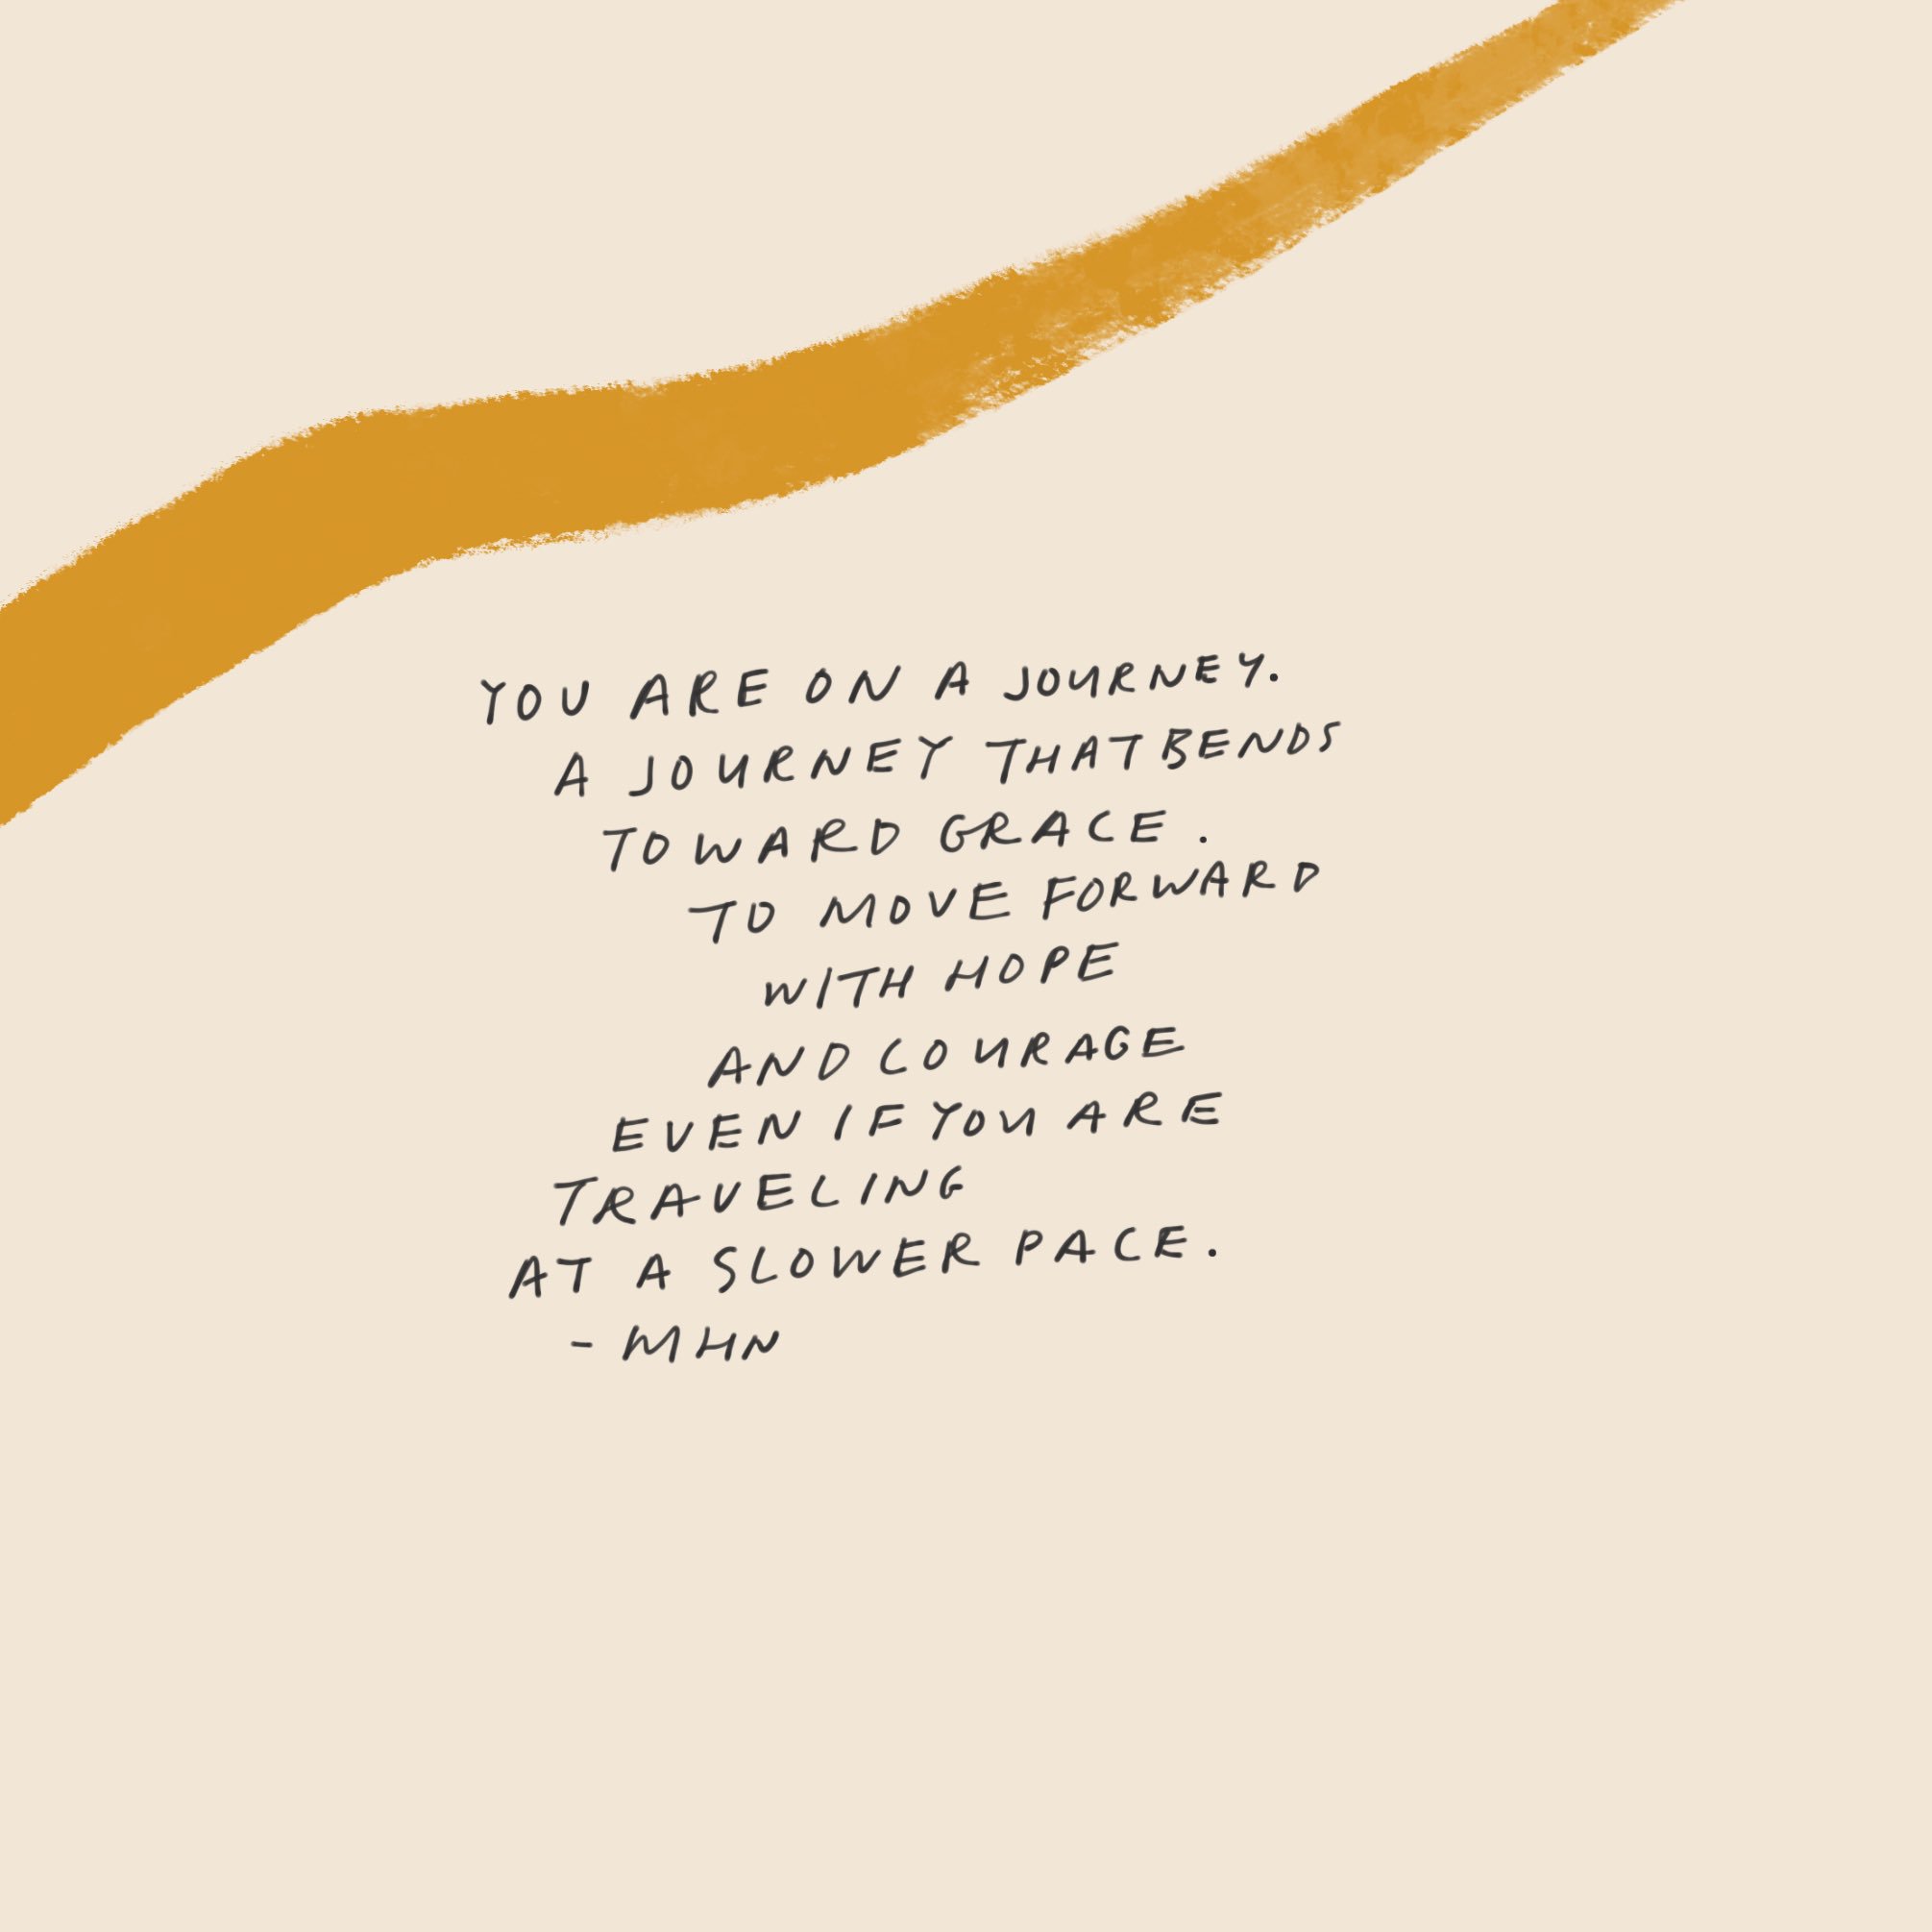 YOU ARE ON A JOURNEY.
A JOURNEY THAT BENDS
TOWARD GRACE.
TO MOVE FORWARD
WITH HOPE
AND COURAGE
EVEN IF YOU ARE
TRAVELING
AT A SLOWER PACE.
- MHN